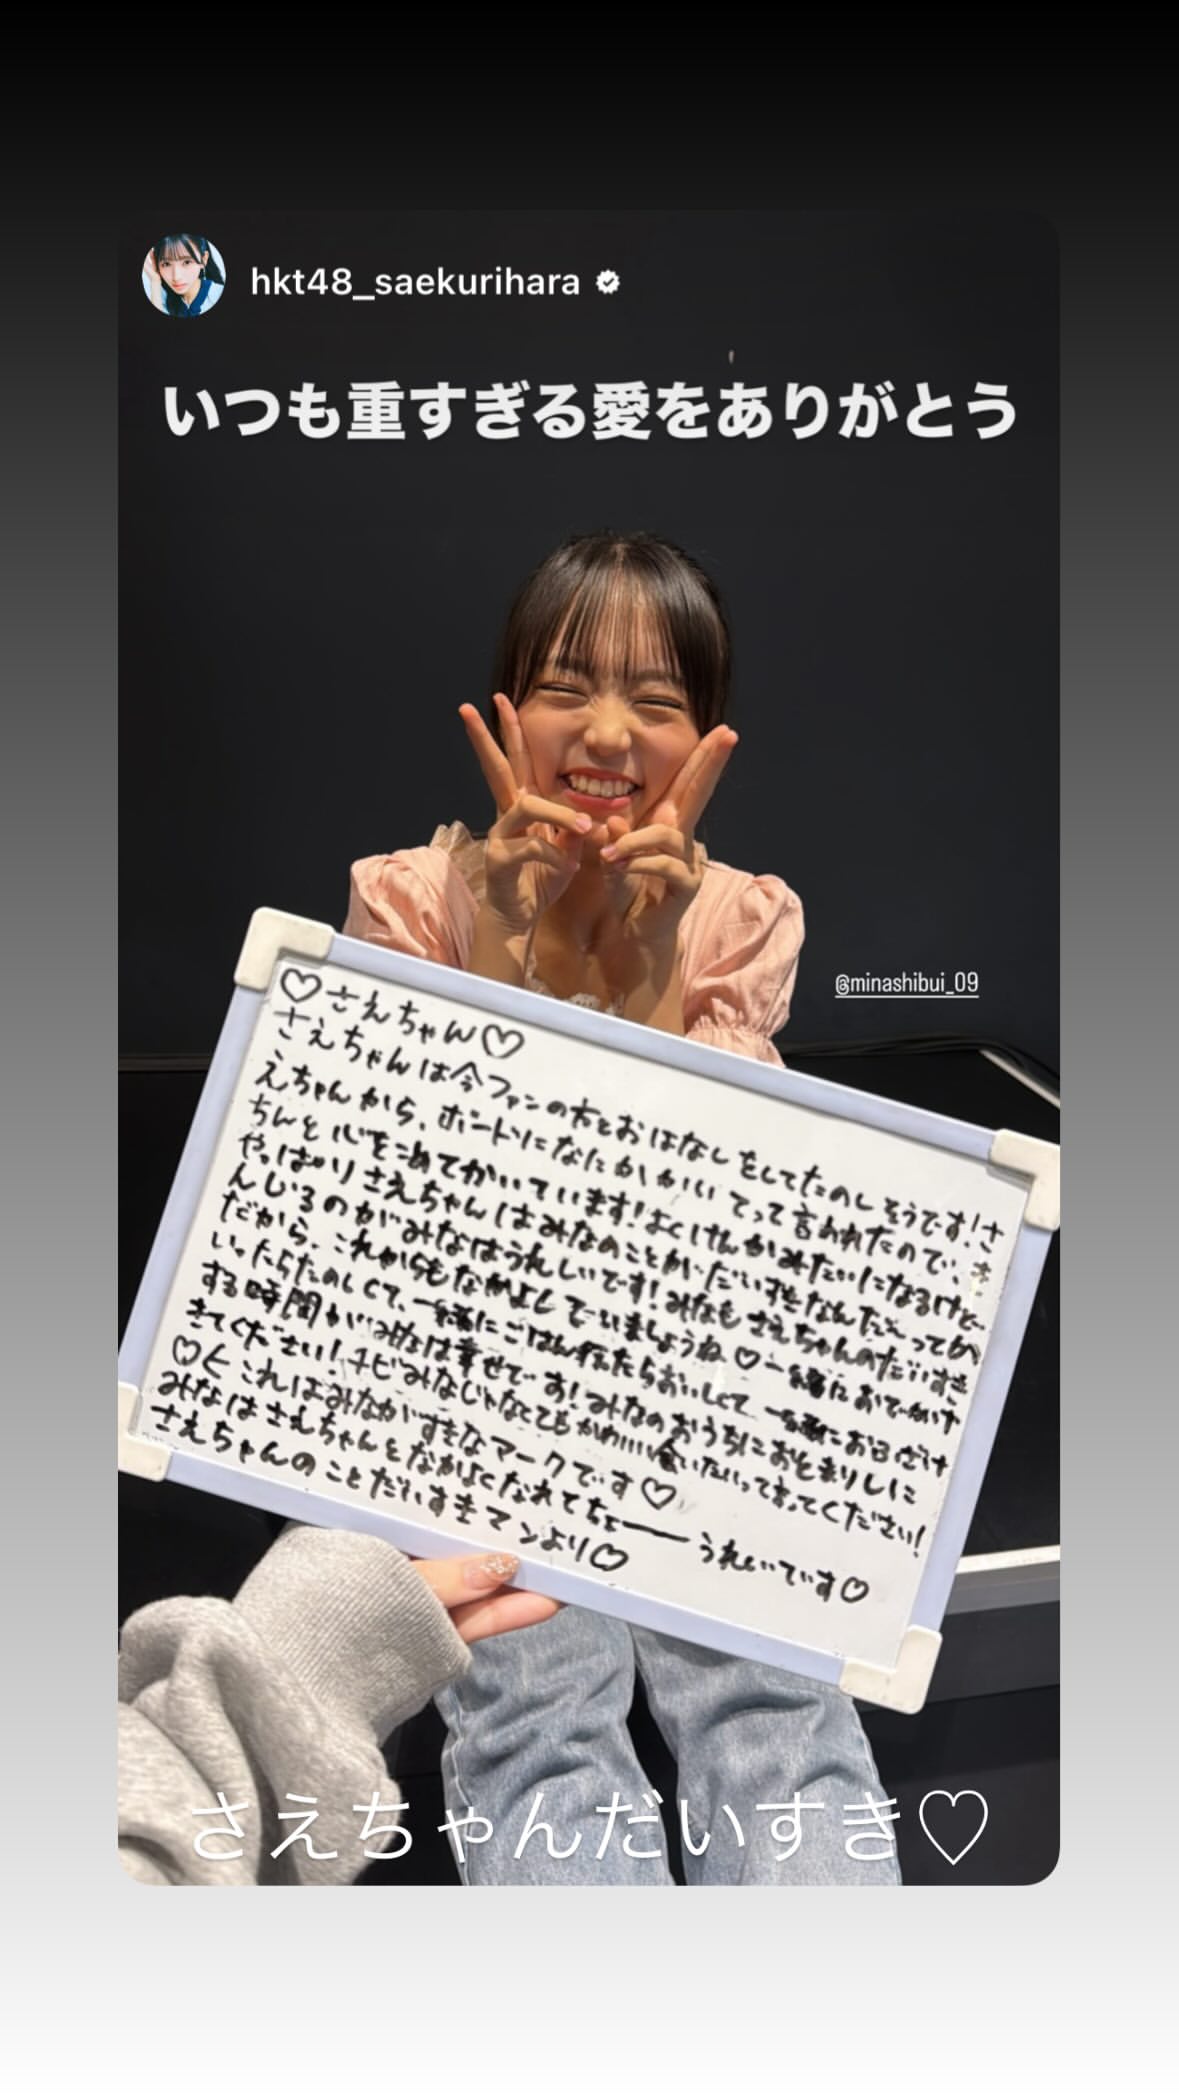 hkt48_saekurihara
いつも重すぎる愛をありがとう
@minashibui_09
♡さえちゃん♡
さえちゃんは今ファンの方とおはなしをしてたのしそうです!さ
えちゃんから、ボードになにかかいてって言われたので、き
ちんと心をこめてかいています!よくけんかみたいになるけど
やっぱりさえちゃんはみなのことがだいすきなんだって
んじるのがみなはうれしいです!みなもさえちゃんのだいすき
だから、これからもなかよしでいましょうね♡一緒におでかけ
いったらたのしくて、一緒にごはん行ったらおいしくて、一緒にお
する時間がみなは幸せです!みなのおうちにおとまりしに
きてください!チビみなじゃなくてもかわいい会いたいって言ってください!
♡くこれはみながすきなマークです♡
みなはさえちゃんとなかよくなれてちょーーうれしいです♡
さえちゃんのことだいすきマンより♡
さえちゃんだいすき♡